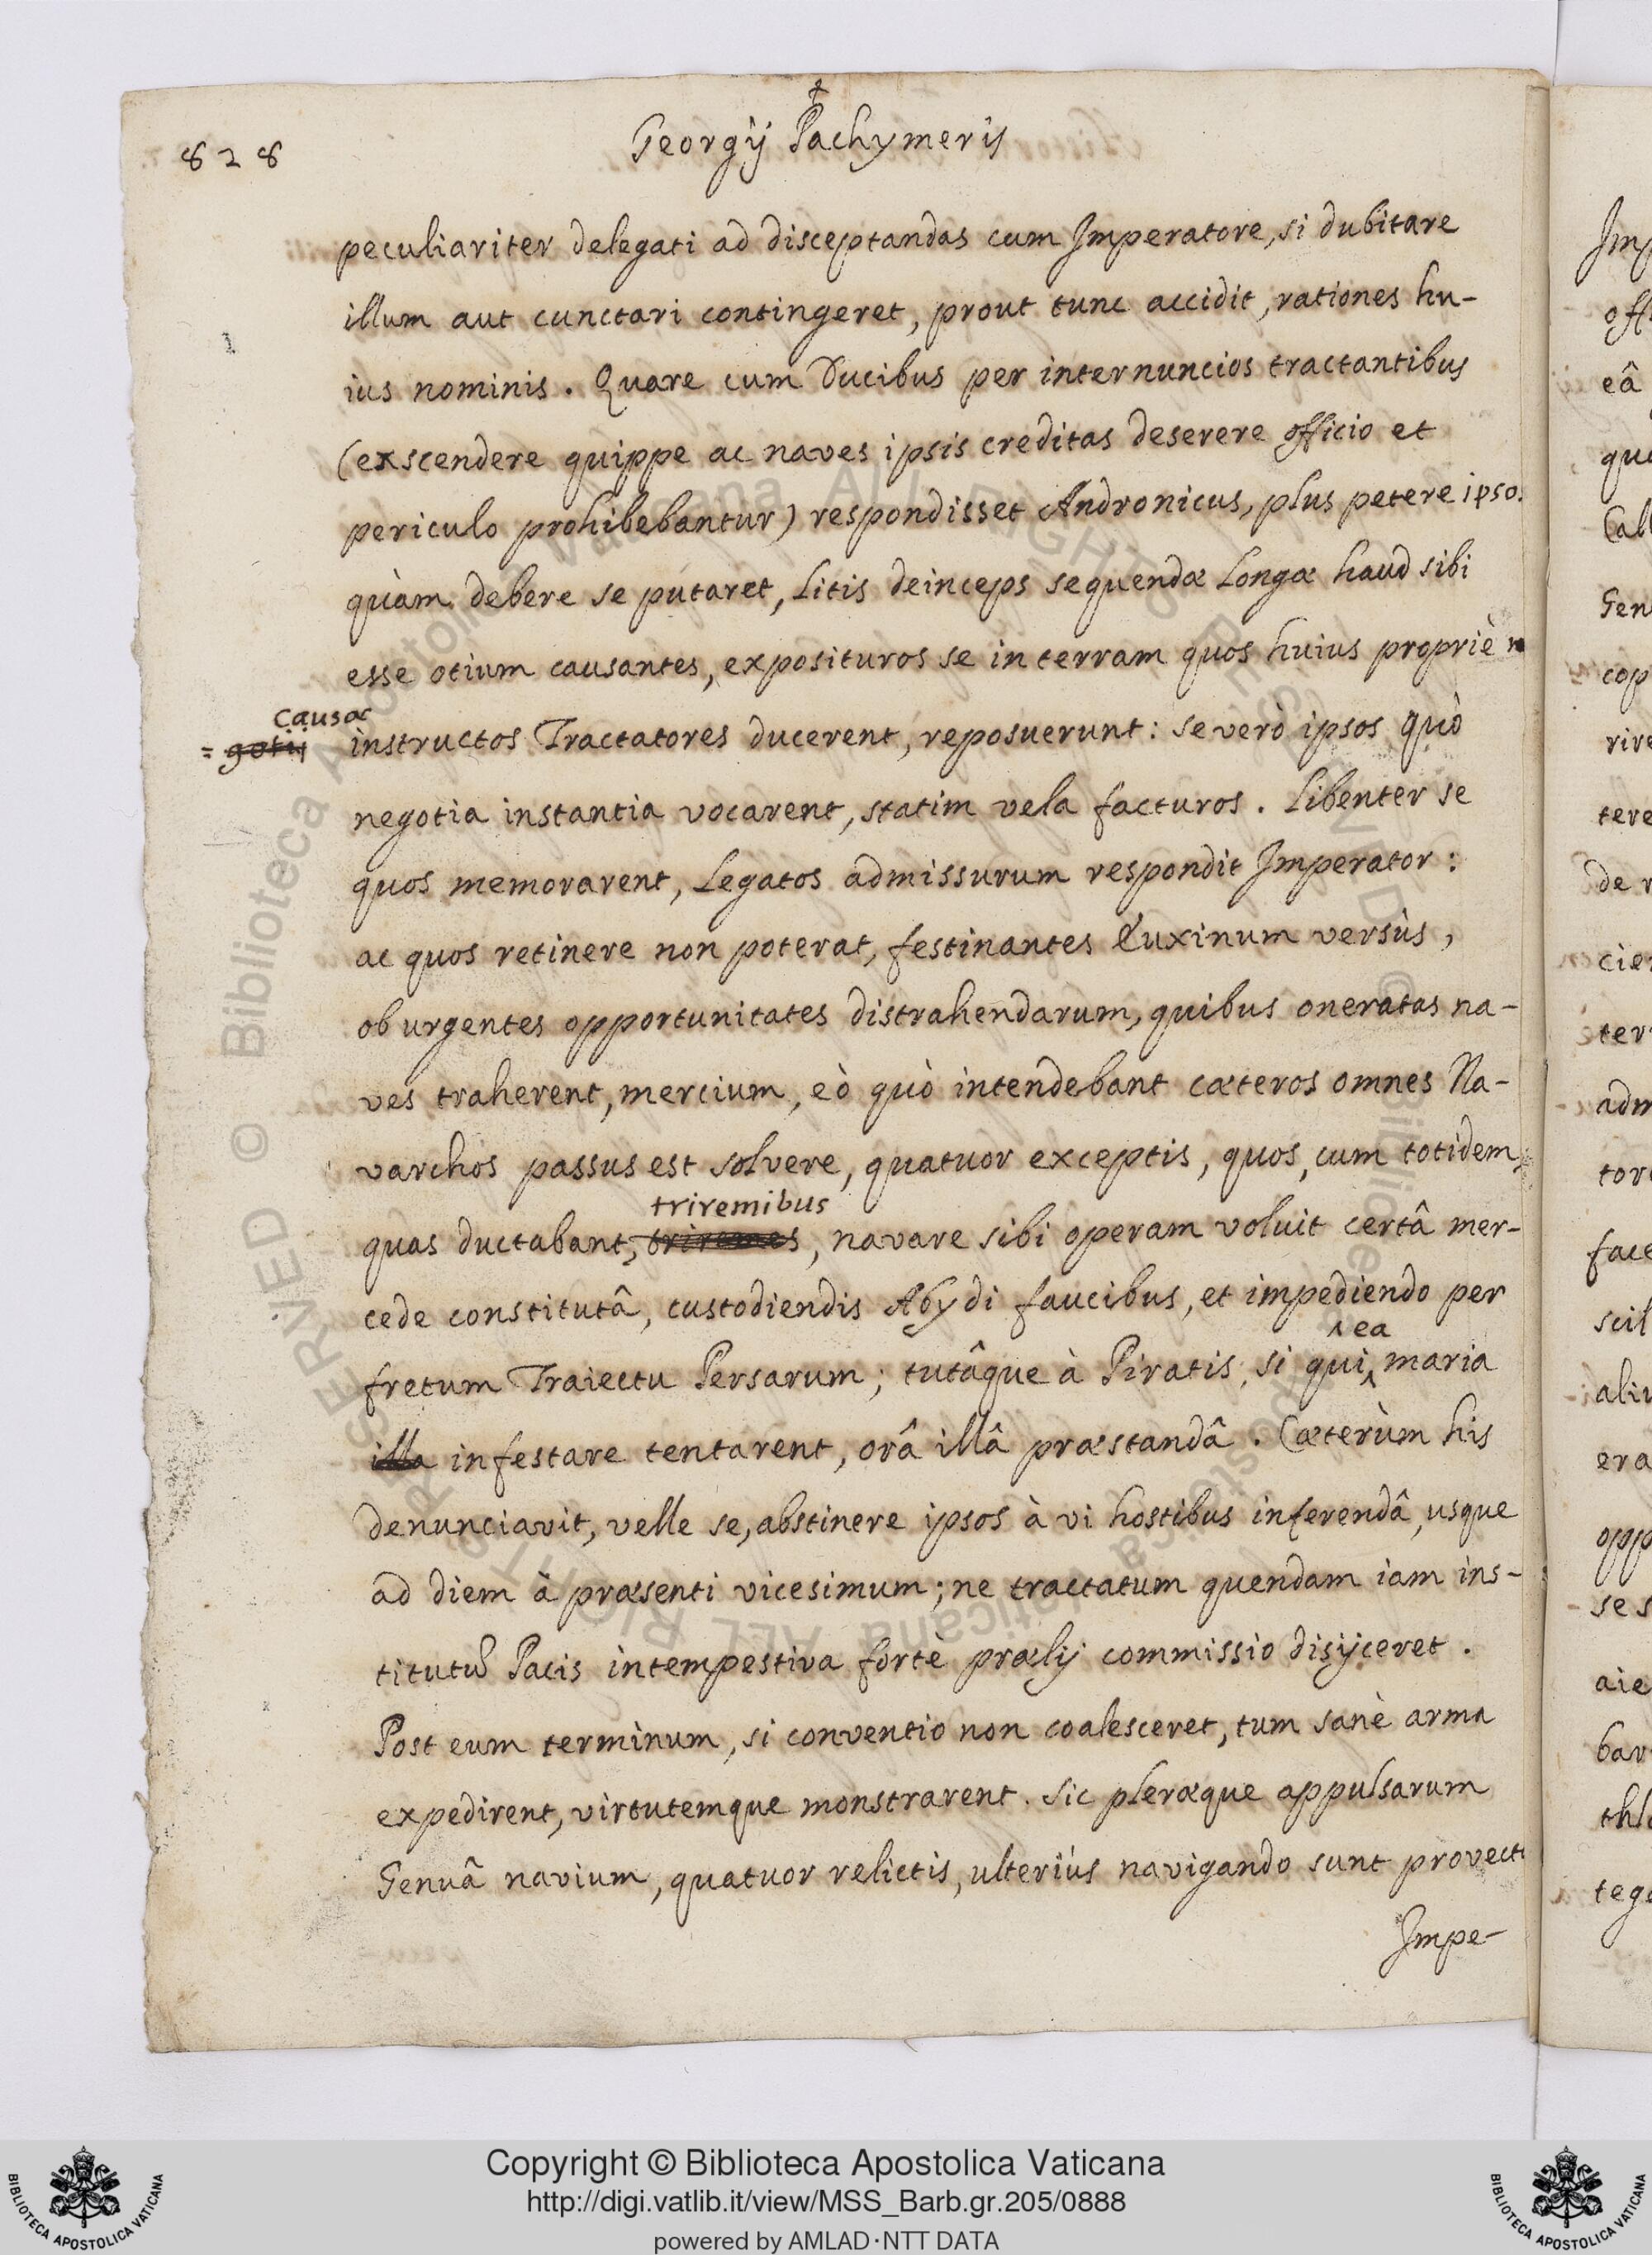 828
Georgij Pachymeris
peculiariter delegati ad disceptandas cum Imperatore, si dubitare
illum aut cunctari contingeret, prout tunc accidit, rationes hu-
ius nominis. Quare cum Ducibus per internuncios tractantibus
(exscendere quippe ac naves ipsis creditas deserere officio et
periculo prohibebantur) respondisset Andronicus, plus petere ipsos
quàm debere se putaret, Litis deinceps sequendæ Longæ haud sibi
esse otium causantes, exposituros se in terram quos huius propriè
causæ
= gotij instructos Tractatores ducerent, reposuerunt: se verò ipsos quò
negotia instantia vocarent, statim vela facturos. Libenter se
quos memorarent, Legatos admissurum respondit Imperator:
ac quos retinere non poterat, festinantes Euxinum versùs,
ob urgentes opportunitates distrahendarum, quibus oneratas na-
ves traherent, mercium, eò quò intendebant cæteros omnes Na-
varchos passus est solvere, quatuor exceptis, quos, cum totidem,
triremibus
quas ductabant, triremes, navare sibi operam voluit certâ mer-
cede constitutâ, custodiendis Abydi faucibus, et impediendo per
ea
fretum Traiectu Persarum; tutâque à Piratis, si qui maria
illa infestare tentarent, orâ illâ præstandâ. Cæterùm his
denunciavit, velle se, abstinere ipsos à vi hostibus inferendâ, usque
ad diem à præsenti vicesimum; ne tractatum quendam iam ins-
titutũ Pacis intempestiva fortè prælij commissio disijceret.
Post eum terminum, si conventio non coalesceret, tum sanè arma
expedirent, virtutemque monstrarent. Sic pleræque appulsarum
Genuâ navium, quatuor relictis, ulteriùs navigando sunt provect
Impe-
Imp
off
eâ
Gen
cop
rire
tere
de
ter
adm
tor
face
scil
aliu
era
opp
se s
aie
bar
thl
teg
© Biblioteca Apostolica Vaticana ALL RIGHTS RESERVED © Biblioteca Apostolica Vaticana ALL RIGHTS RESERVED
Copyright © Biblioteca Apostolica Vaticana
http://digi.vatlib.it/view/MSS_Barb.gr.205/0888
powered by AMLAD·NTT DATA
BIBLIOTECA APOSTOLICA VATICANA
BIBLIOTECA APOSTOLICA VATICANA